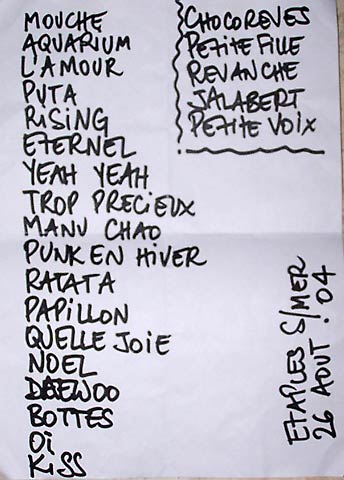 MOUCHE
AQUARIUM
L'AMOUR
PUTA
RISING
ETERNEL
YEAH YEAH
TROP PRECIEUX
MANU CHAO
PUNK EN HIVER
RATATA
PAPILLON
QUELLE JOIE
NOEL
DAEWOO
BOTTES
OI
KISS
CHOCOREVES
PETITE FILLE
REVANCHE
JALABERT
PETITE VOIX
ETAPLES S/MER
26 AOUT . 04